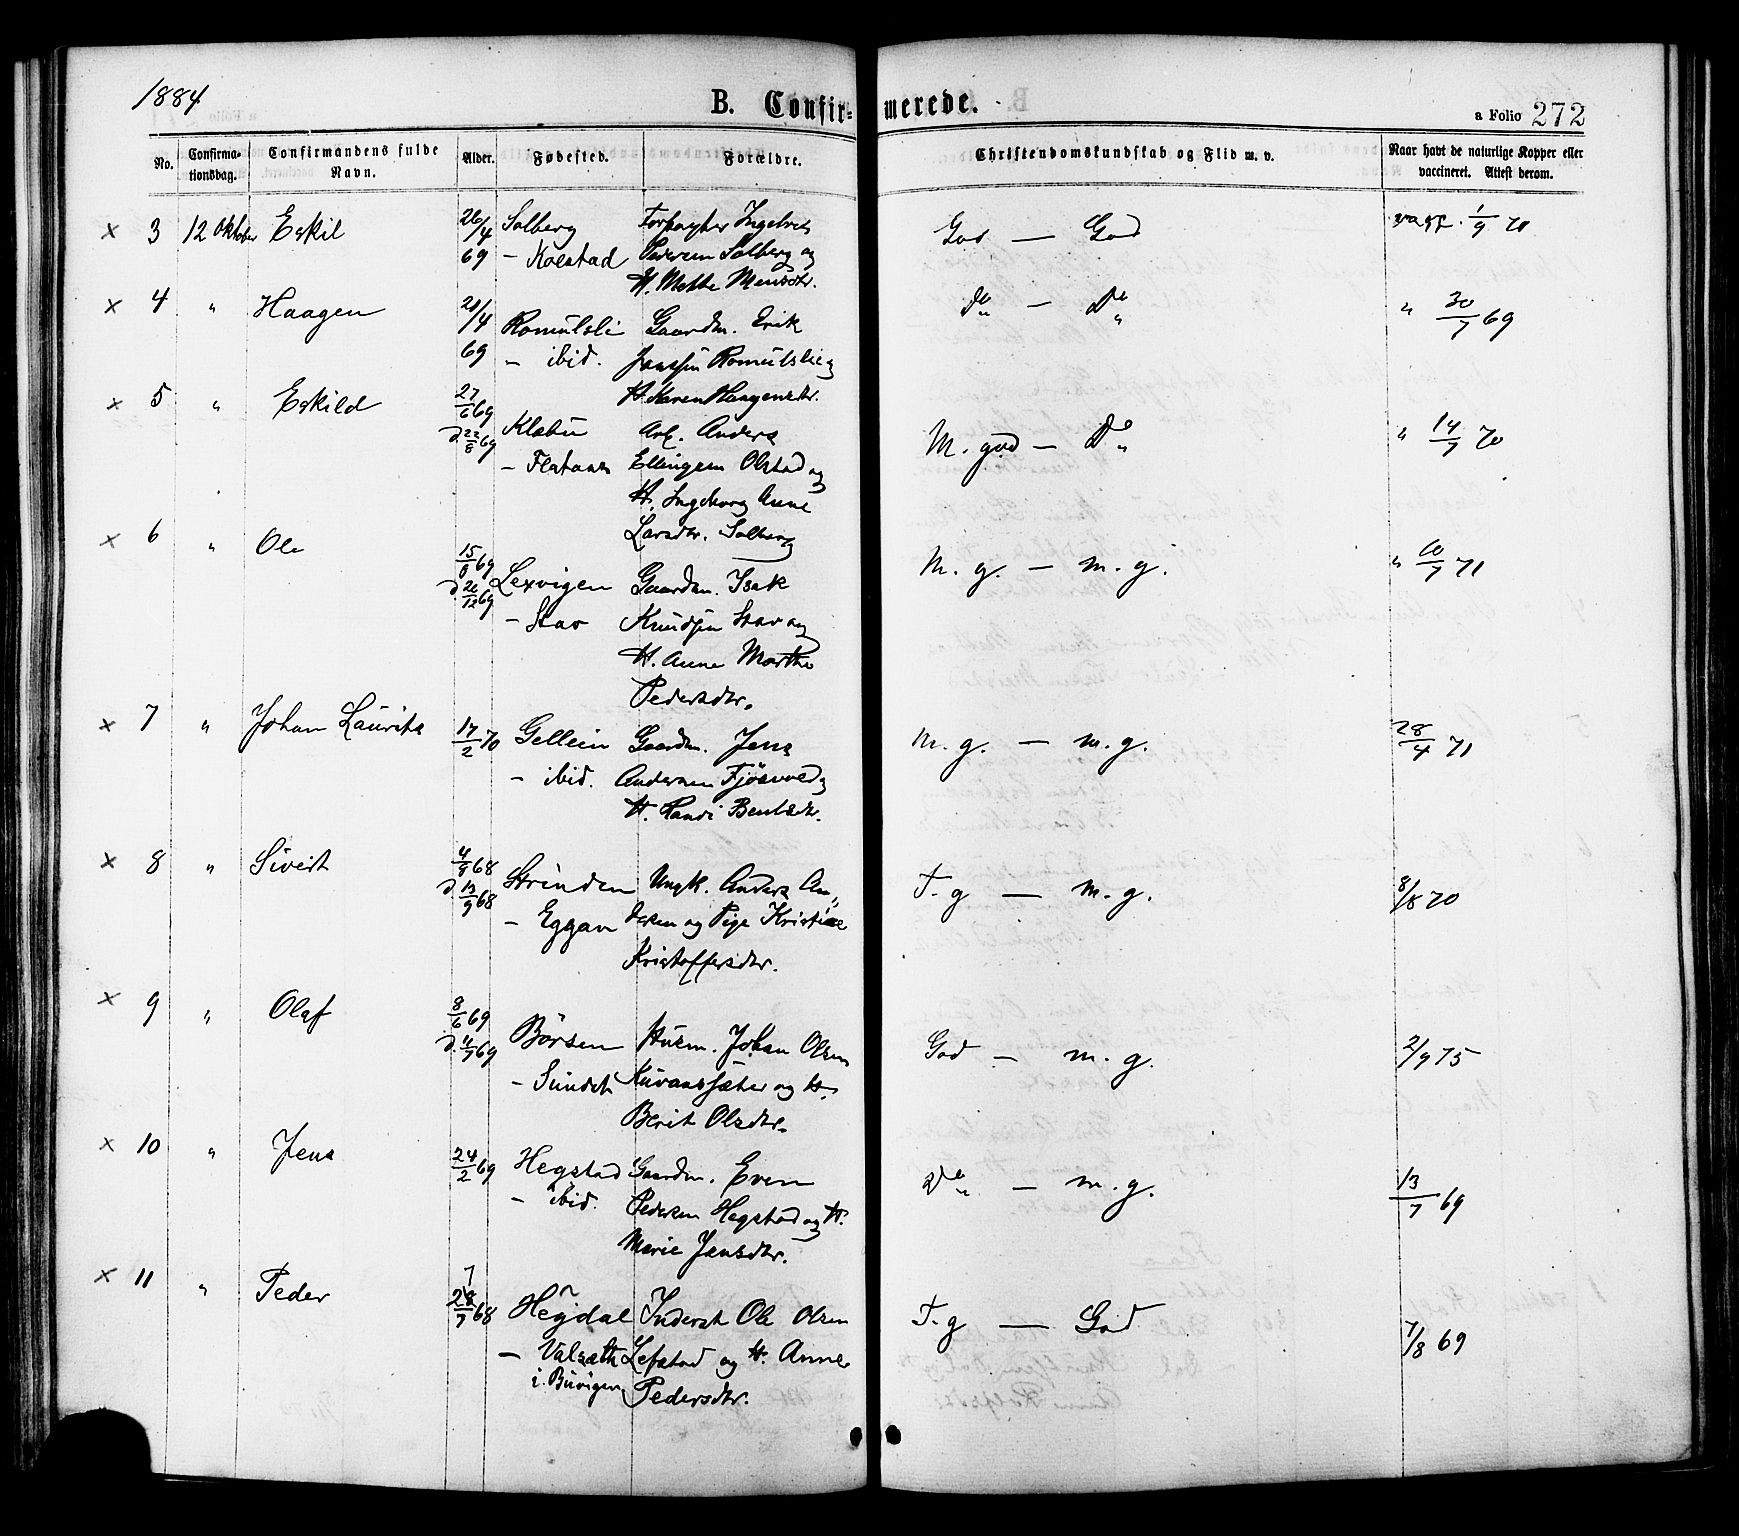 1884
B. Confirmerede.
a Folio 272
No. Confirmationsdag. Confirmandens fulde Navn. Alder. Fødested. Forældre. Christendomskundskab og Flid m. v. Naar havt de naturlige Kopper eller vaccineret. Attest derom.
× 3 12 Oktober Eskil 26/4 69 Solberg Forpagter God — God 1/9 70
– Kolstad Pedersen Solberg og
H. Mette Monsdtr.
× 4 " Haagen 21/4 69 Romulsli Gaardm. Erik Do — Do " 30/7 69
– ibid. Jonsen Romulslie og
H. Karen Haagensdtr.
× 5 " Eskild 27/6 69 d. 22/8 69 Klæbu Arb. Anders M. god — Do " 14/7 70
– Flataas Ellingsen Olstad og
H. Ingeborg Anne
Larsdtr. Solberg
× 6 " Ole 15/8 69 d. 26/12 69 Lexvigen Gaardm. Isak M. g. — m. g. " 10/7 71
– Stav Knudsen Stav og
H. Anne Marthe
Pedersdtr.
× 7 " Johan Laurits 17/2 70 Gellein Gaardm. Jens M. g. — m. g. 28/4 71
– ibid. Andersen Fjösvold og
H. Randi Bentsdtr.
× 8 " Sivert 4/9 68 d. 13/9 68 Strinden Ungk. Anders An„ T. g — m. g. 8/8 70
– Eggan dersen og Pige Kristine
Kristoffersdtr.
× 9 " Olaf 8/6 69 d. 4/7 69 Börsen Husm. Johan Olsen God — m. g. 2/9 75
– Sundet Kuvaassæter og H.
Berit Olsdtr.
× 10 " Jens 24/2 69 Hegstad Gaardm. Even Do — m. g. 13/7 69
– ibid. Pedersen Hegstad og H.
Marie Jensdtr.
× 11 " Peder 7 28/7 68 Högdal Inderst Ole Olsen T. g — God 7/8 69
– Valsæth Lefstad og H. Anne
i Buvigen Pedersdtr.